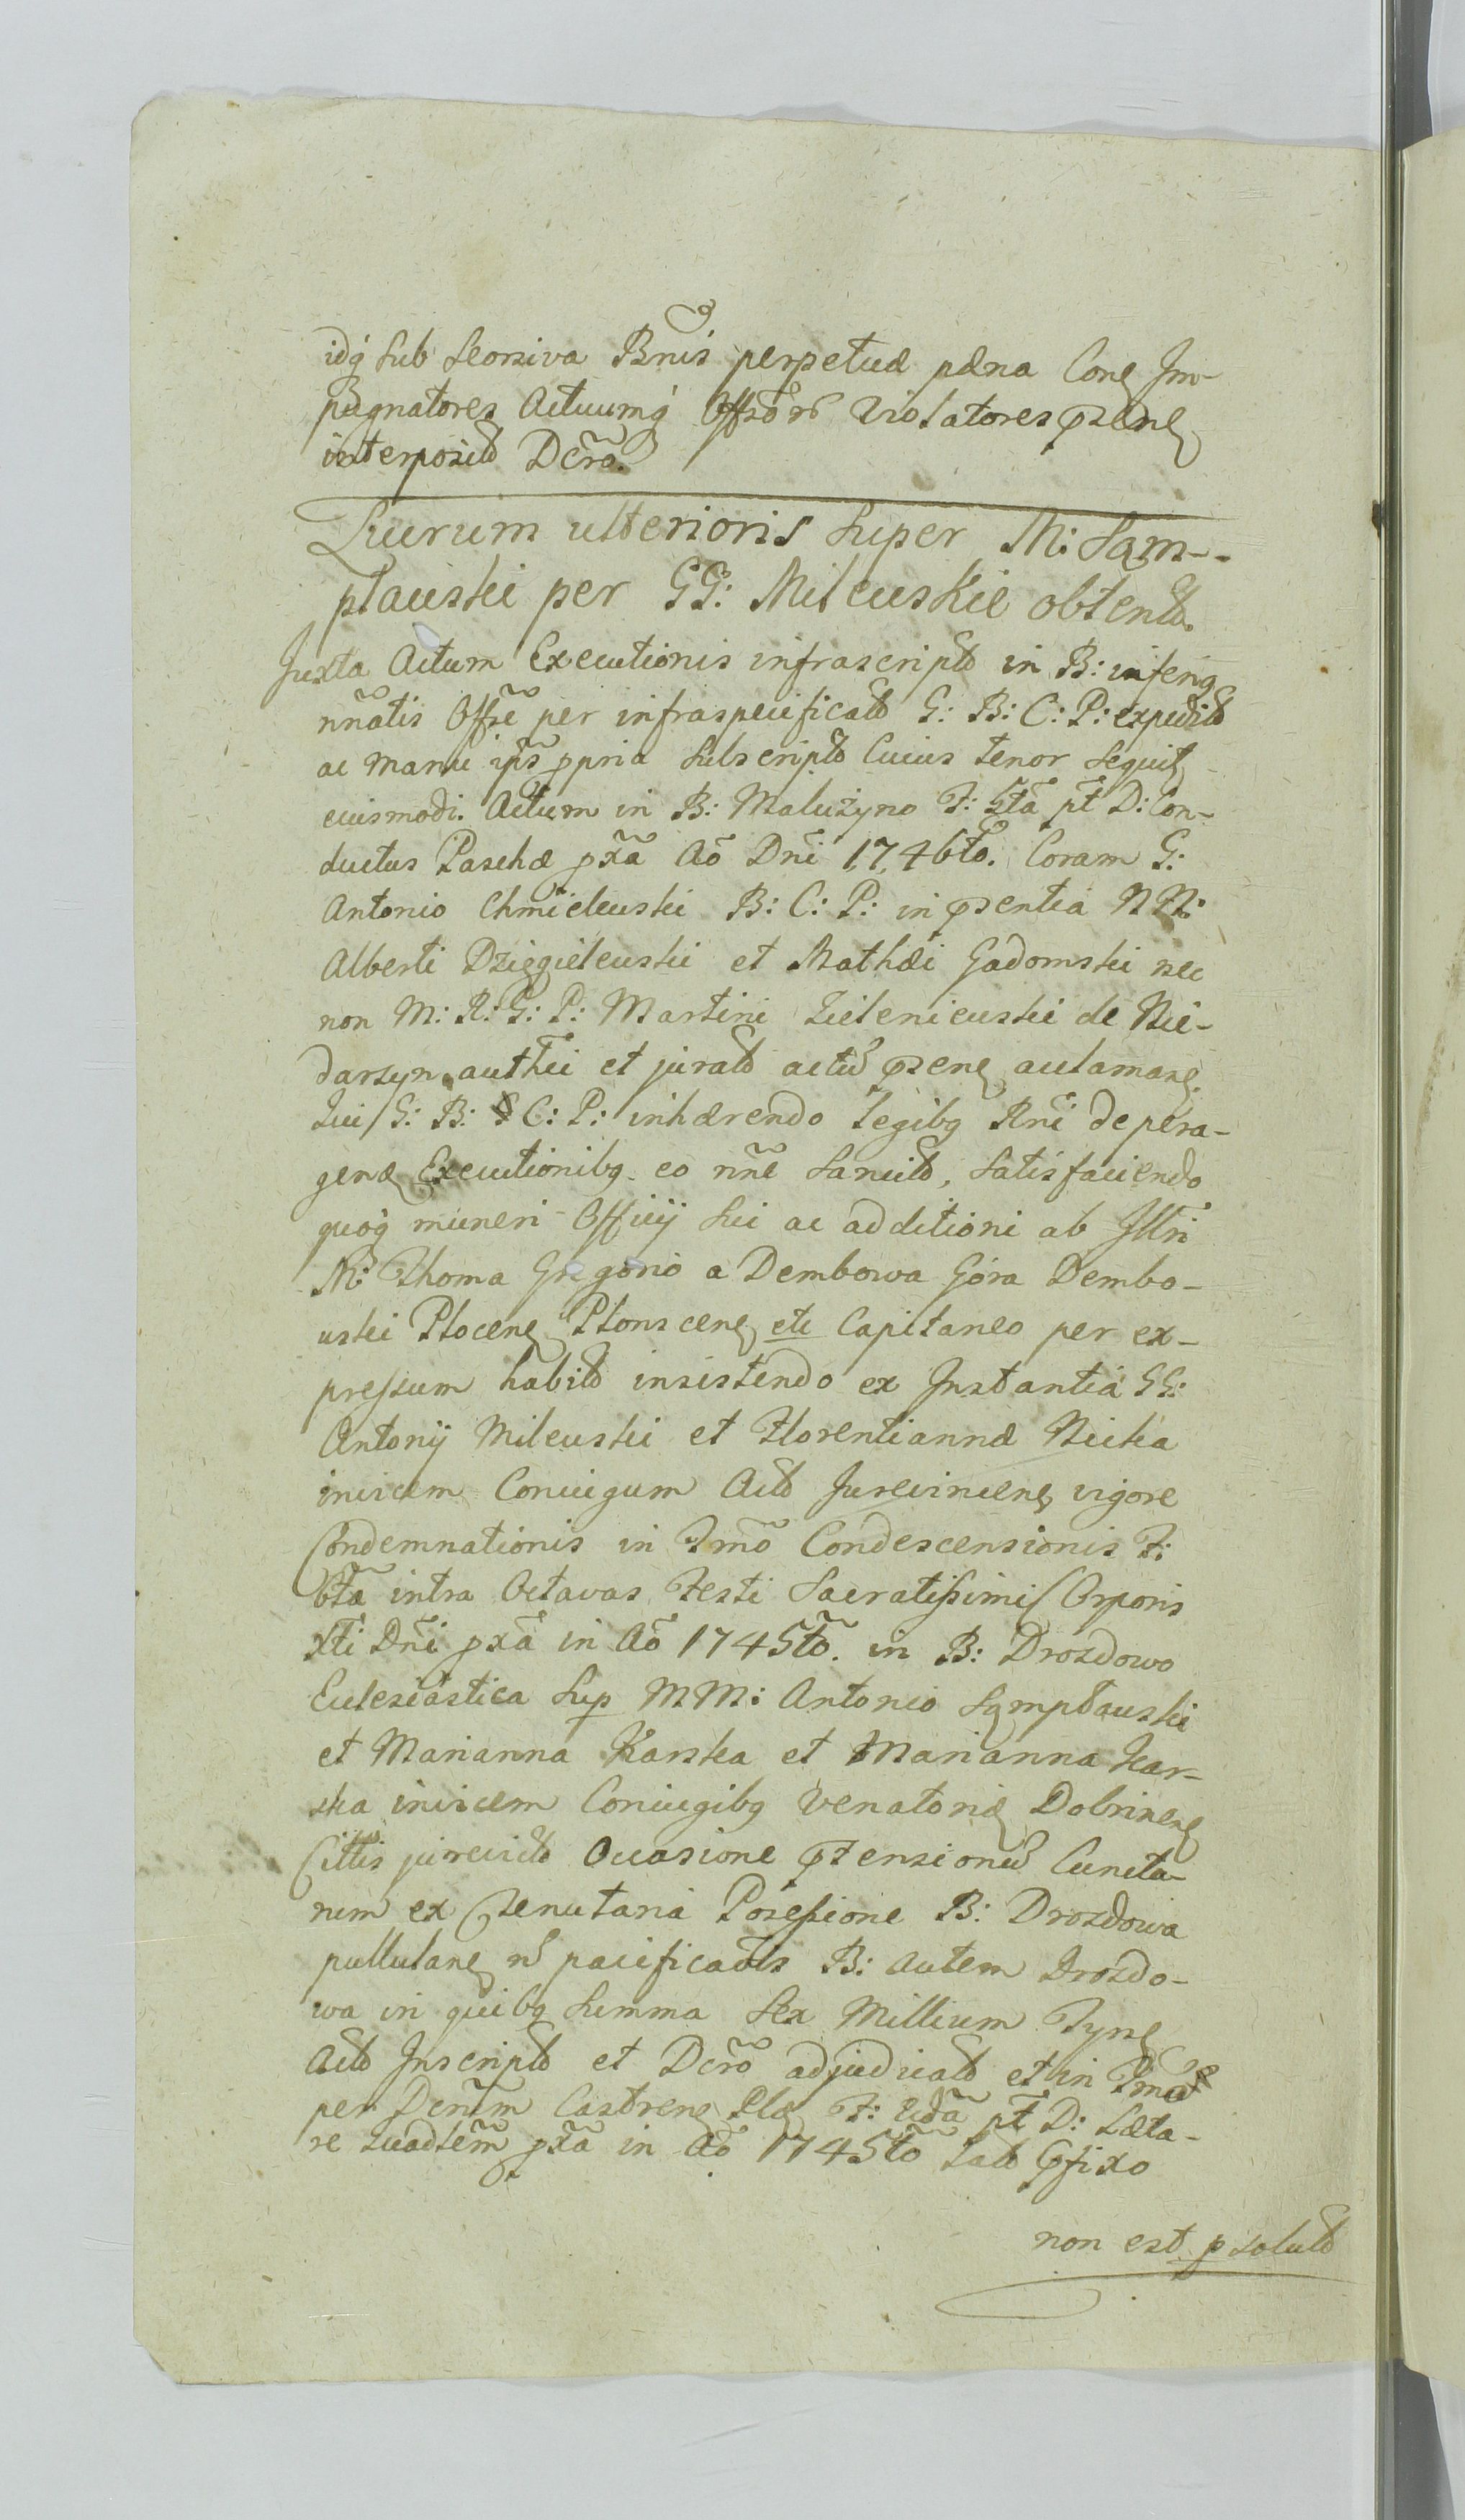 idq́ sub seorsiva Bnis perpetuæ pæna Cone Im-
pugnatores Actuumq́ Violatores
interposit Dcro.
Lucrum ulterioris super M: Sam--
plawski per GG: Milewskie obtent.
Juxta Actum Executionis infrascript in B: inferiq
nnatis Offse per infraspecificat G: B: C: P: expedit
ac manu ips ppria subscript Cuius tenor sequit
eiusmodi. Actum in B: Malużyno F: 5ta pt D: Con-
ductus Paschæ pxa Ao Dni 1746to. Coram G:
Antonio Chmielewski B: C: P: in psentia NN:
Alberti Dzięgielewski et Mathæi Gadomski nec
non M: R: G: P: Martini Zieleniewski de Nie-
darzyn authci et jurat actu psene aclamane.
Qui G: B: C: P: inhærendo Legibq Rni de pera-
gene Executionibq eo nne sancit, satisfaciendo
quoq́ muneri Officij sui ac additioni ab Illri
M: Thoma Gregorio a Dembowa Góra Dembo-
wski Plocene Plonscene etc Capitaneo per ex-
pressum habit insistendo ex Instantia GG:
Antonij Milewski et Florentiannæ Nicka
invicem Coniugum Act Jurevincene vigore
Condemnationis in Tmo Condescensionis F:
6ta intra Octavas Festi Sacratissimi Corporis
Xti Dni pxa in Ao 1745to. in B: Drozdowo
Eclesiastica sup MM: Antonio Sąmpławski
et Marianna Karska et Marianna Kar-
ska invicem Coniugibq Venatoriæ Dobrinene
Cittis jurevict Occasione ptensionu Cuncta-
rum ex Tenutaria Possessione B: Drozdowa
pullulane n pacificatis B: autem Drozdo-
wa in quibq summa sex Millium Tyne
Act Inscript et Dcro adjudicat et in
per Dcrum Castrene Ple F: 2da pt D: Læta-
re Quadlem pxa in Ao 1745to lat pfixo
non est psolut